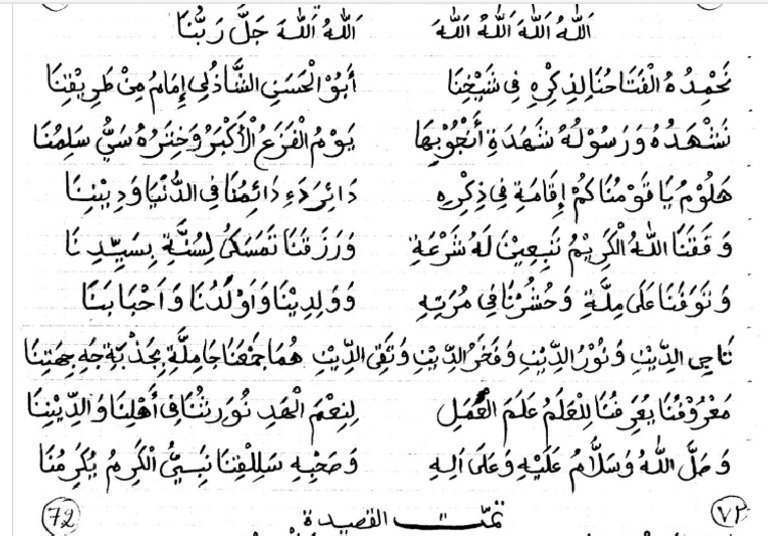 اَللّٰهُ اَللّٰهَ اَللّٰهُ اَللّٰهَ اَللّٰهُ اَللّٰهَ جَلَّ رَبُّنَا
نَحْمِدُهُ الْفَتَاحُنَا لِذِكْرِهِ فِى شَيْخِنَا اَبُوْ الْحَسَنِى الشَّاذُلِى إِمَامُ مِنْ طَرِيْقَتِنَا
نَشْهَدُهُ وَرَسُوْلُهُ شَهَدَةِ أَنْجُوْبِهَا يَوْمُ الْفَزَعُ الْأَكْبَرُ سَلِمُنَا
هَلُوْمُ يَا قَوْمُنَاكُمْ إِقَامَةِ فِى ذِكْرِهِ دَائِمُنَا فِى الدُّنْيَا وَدِيْنِنَا
وَفَقَنَا اللهُ الْكَرِيْمُ تَبِعِيْنَ لَهُ شَرْعَةِ وَرَزَقَنَا تَمَسَكُ لِسُنَّةِ بِسَيِّدِنَا
وَتَوَفُنَا عَلَى مِلَّةِ وَحُشُرْنَا فِى مُرَتِهِ وَوَلِدِيْنَا وَاَوْلَدُنَا وَاَحْبَابَنَا
تَاجِى الدِّيْنِ وَنُوْرُ الدِّيْنِ وَفَخَرُ الدِّيْنِ وَتَقِى الدِّيْنِ هُمَا جَمْعَنَا جَامِلَّةِ بِجَذْبَةِ
مَعْرُوْفُنَا يُعَرِفُنَا لِلْعَلَمُ عَلَمَ الْعَمَلِ لِنِعْمَ الْهَدِ فِى أَهْلِنَا وَالدِّيْنِنَا
وَصَلَّ اللهُ وَسَلَّامُ عَلَيْهِ وَعَلَى اَلِهِ وَصَحْبِهِ نَبِيُّ الْكَرِمُ يُكَرِمُنَا
٧٢ تمّت القصيدة 72